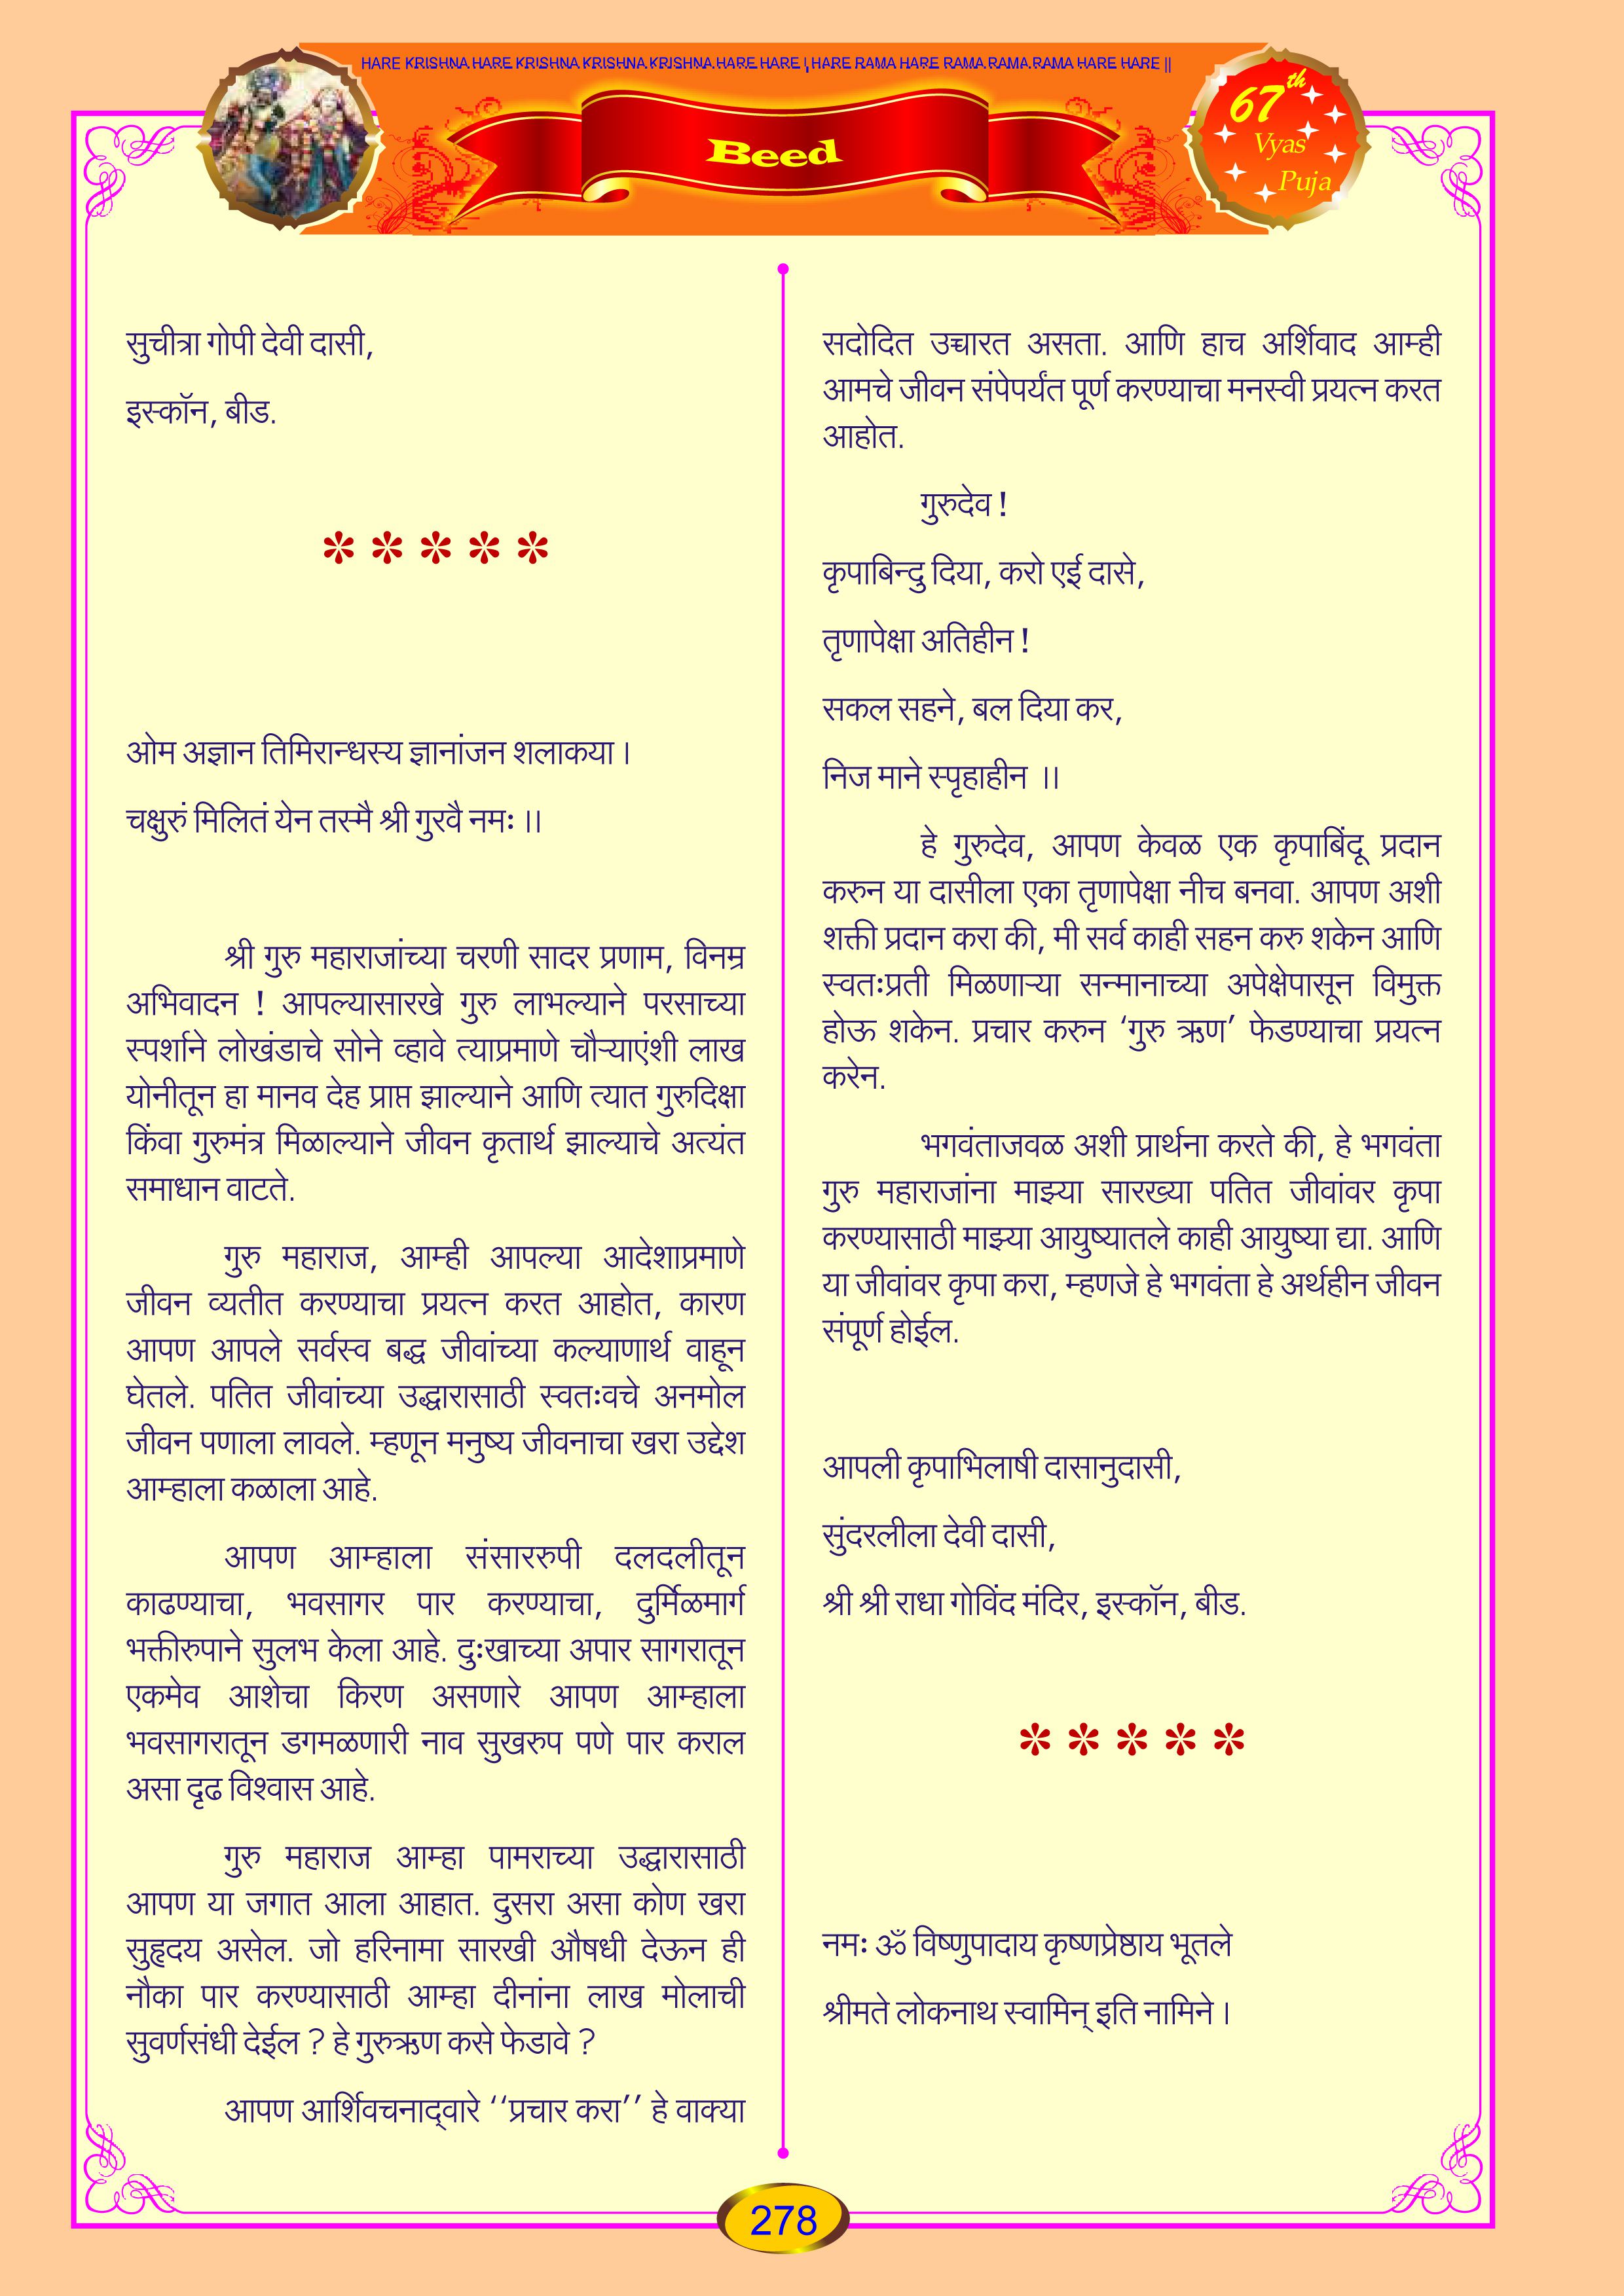 HARE KRISHNA HARE KRISHNA KRISHNA KRISHNA HARE HARE | HARE RAMA HARE RAMA RAMA RAMA HARE HARE ||
Beed
67th
Vyas
Puja
सुचीत्रा गोपी देवी दासी,
इस्कॉन, बीड.
ओम अज्ञान तिमिरान्धस्य ज्ञानांजन शलाकया ।
चक्षुरुं मिलितं येन तस्मै श्री गुरवै नमः ।।
श्री गुरु महाराजांच्या चरणी सादर प्रणाम, विनम्र
अभिवादन ! आपल्यासारखे गुरु लाभल्याने परसाच्या
स्पर्शाने लोखंडाचे सोने व्हावे त्याप्रमाणे चौऱ्याएंशी लाख
योनीतून हा मानव देह प्राप्त झाल्याने आणि त्यात गुरुदिक्षा
किंवा गुरुमंत्र मिळाल्याने जीवन कृतार्थ झाल्याचे अत्यंत
समाधान वाटते.
गुरु महाराज, आम्ही आपल्या आदेशाप्रमाणे
जीवन व्यतीत करण्याचा प्रयत्न करत आहोत, कारण
आपण आपले सर्वस्व बद्ध जीवांच्या कल्याणार्थ वाहून
घेतले. पतित जीवांच्या उद्धारासाठी स्वतःवचे अनमोल
जीवन पणाला लावले. म्हणून मनुष्य जीवनाचा खरा उद्देश
आम्हाला कळाला आहे.
आपण आम्हाला संसाररुपी दलदलीतून
काढण्याचा, भवसागर पार करण्याचा, दुर्मिळमार्ग
भक्तीरुपाने सुलभ केला आहे. दुःखाच्या अपार सागरातून
एकमेव आशेचा किरण असणारे आपण आम्हाला
भवसागरातून डगमळणारी नाव सुखरुप पणे पार कराल
असा दृढ विश्वास आहे.
गुरु महाराज आम्हा पामराच्या उद्धारासाठी
आपण या जगात आला आहात. दुसरा असा कोण खरा
सुहृदय असेल. जो हरिनामा सारखी औषधी देऊन ही
नौका पार करण्यासाठी आम्हा दीनांना लाख मोलाची
सुवर्णसंधी देईल ? हे गुरुऋण कसे फेडावे ?
आपण आर्शिवचनाद्‌वारे ‘‘प्रचार करा’’ हे वाक्या
सदोदित उच्चारत असता. आणि हाच अर्शिवाद आम्ही
आमचे जीवन संपेपर्यंत पूर्ण करण्याचा मनस्वी प्रयत्न करत
आहोत.
गुरुदेव !
कृपाबिन्दु दिया, करो एई दासे,
तृणापेक्षा अतिहीन !
सकल सहने, बल दिया कर,
निज माने स्पृहाहीन ।।
हे गुरुदेव, आपण केवळ एक कृपाबिंदू प्रदान
करुन या दासीला एका तृणापेक्षा नीच बनवा. आपण अशी
शक्ती प्रदान करा की, मी सर्व काही सहन करु शकेन आणि
स्वतःप्रती मिळणाऱ्या सन्मानाच्या अपेक्षेपासून विमुक्त
होऊ शकेन. प्रचार करुन ‘गुरु ऋण’ फेडण्याचा प्रयत्न
करेन.
भगवंताजवळ अशी प्रार्थना करते की, हे भगवंता
गुरु महाराजांना माझ्या सारख्या पतित जीवांवर कृपा
करण्यासाठी माझ्या आयुष्यातले काही आयुष्या द्या. आणि
या जीवांवर कृपा करा, म्हणजे हे भगवंता हे अर्थहीन जीवन
संपूर्ण होईल.
आपली कृपाभिलाषी दासानुदासी,
सुंदरलीला देवी दासी,
श्री श्री राधा गोविंद मंदिर, इस्कॉन, बीड.
नमः ॐ विष्णुपादाय कृष्णप्रेष्ठाय भूतले
श्रीमते लोकनाथ स्वामिन् इति नामिने ।
278